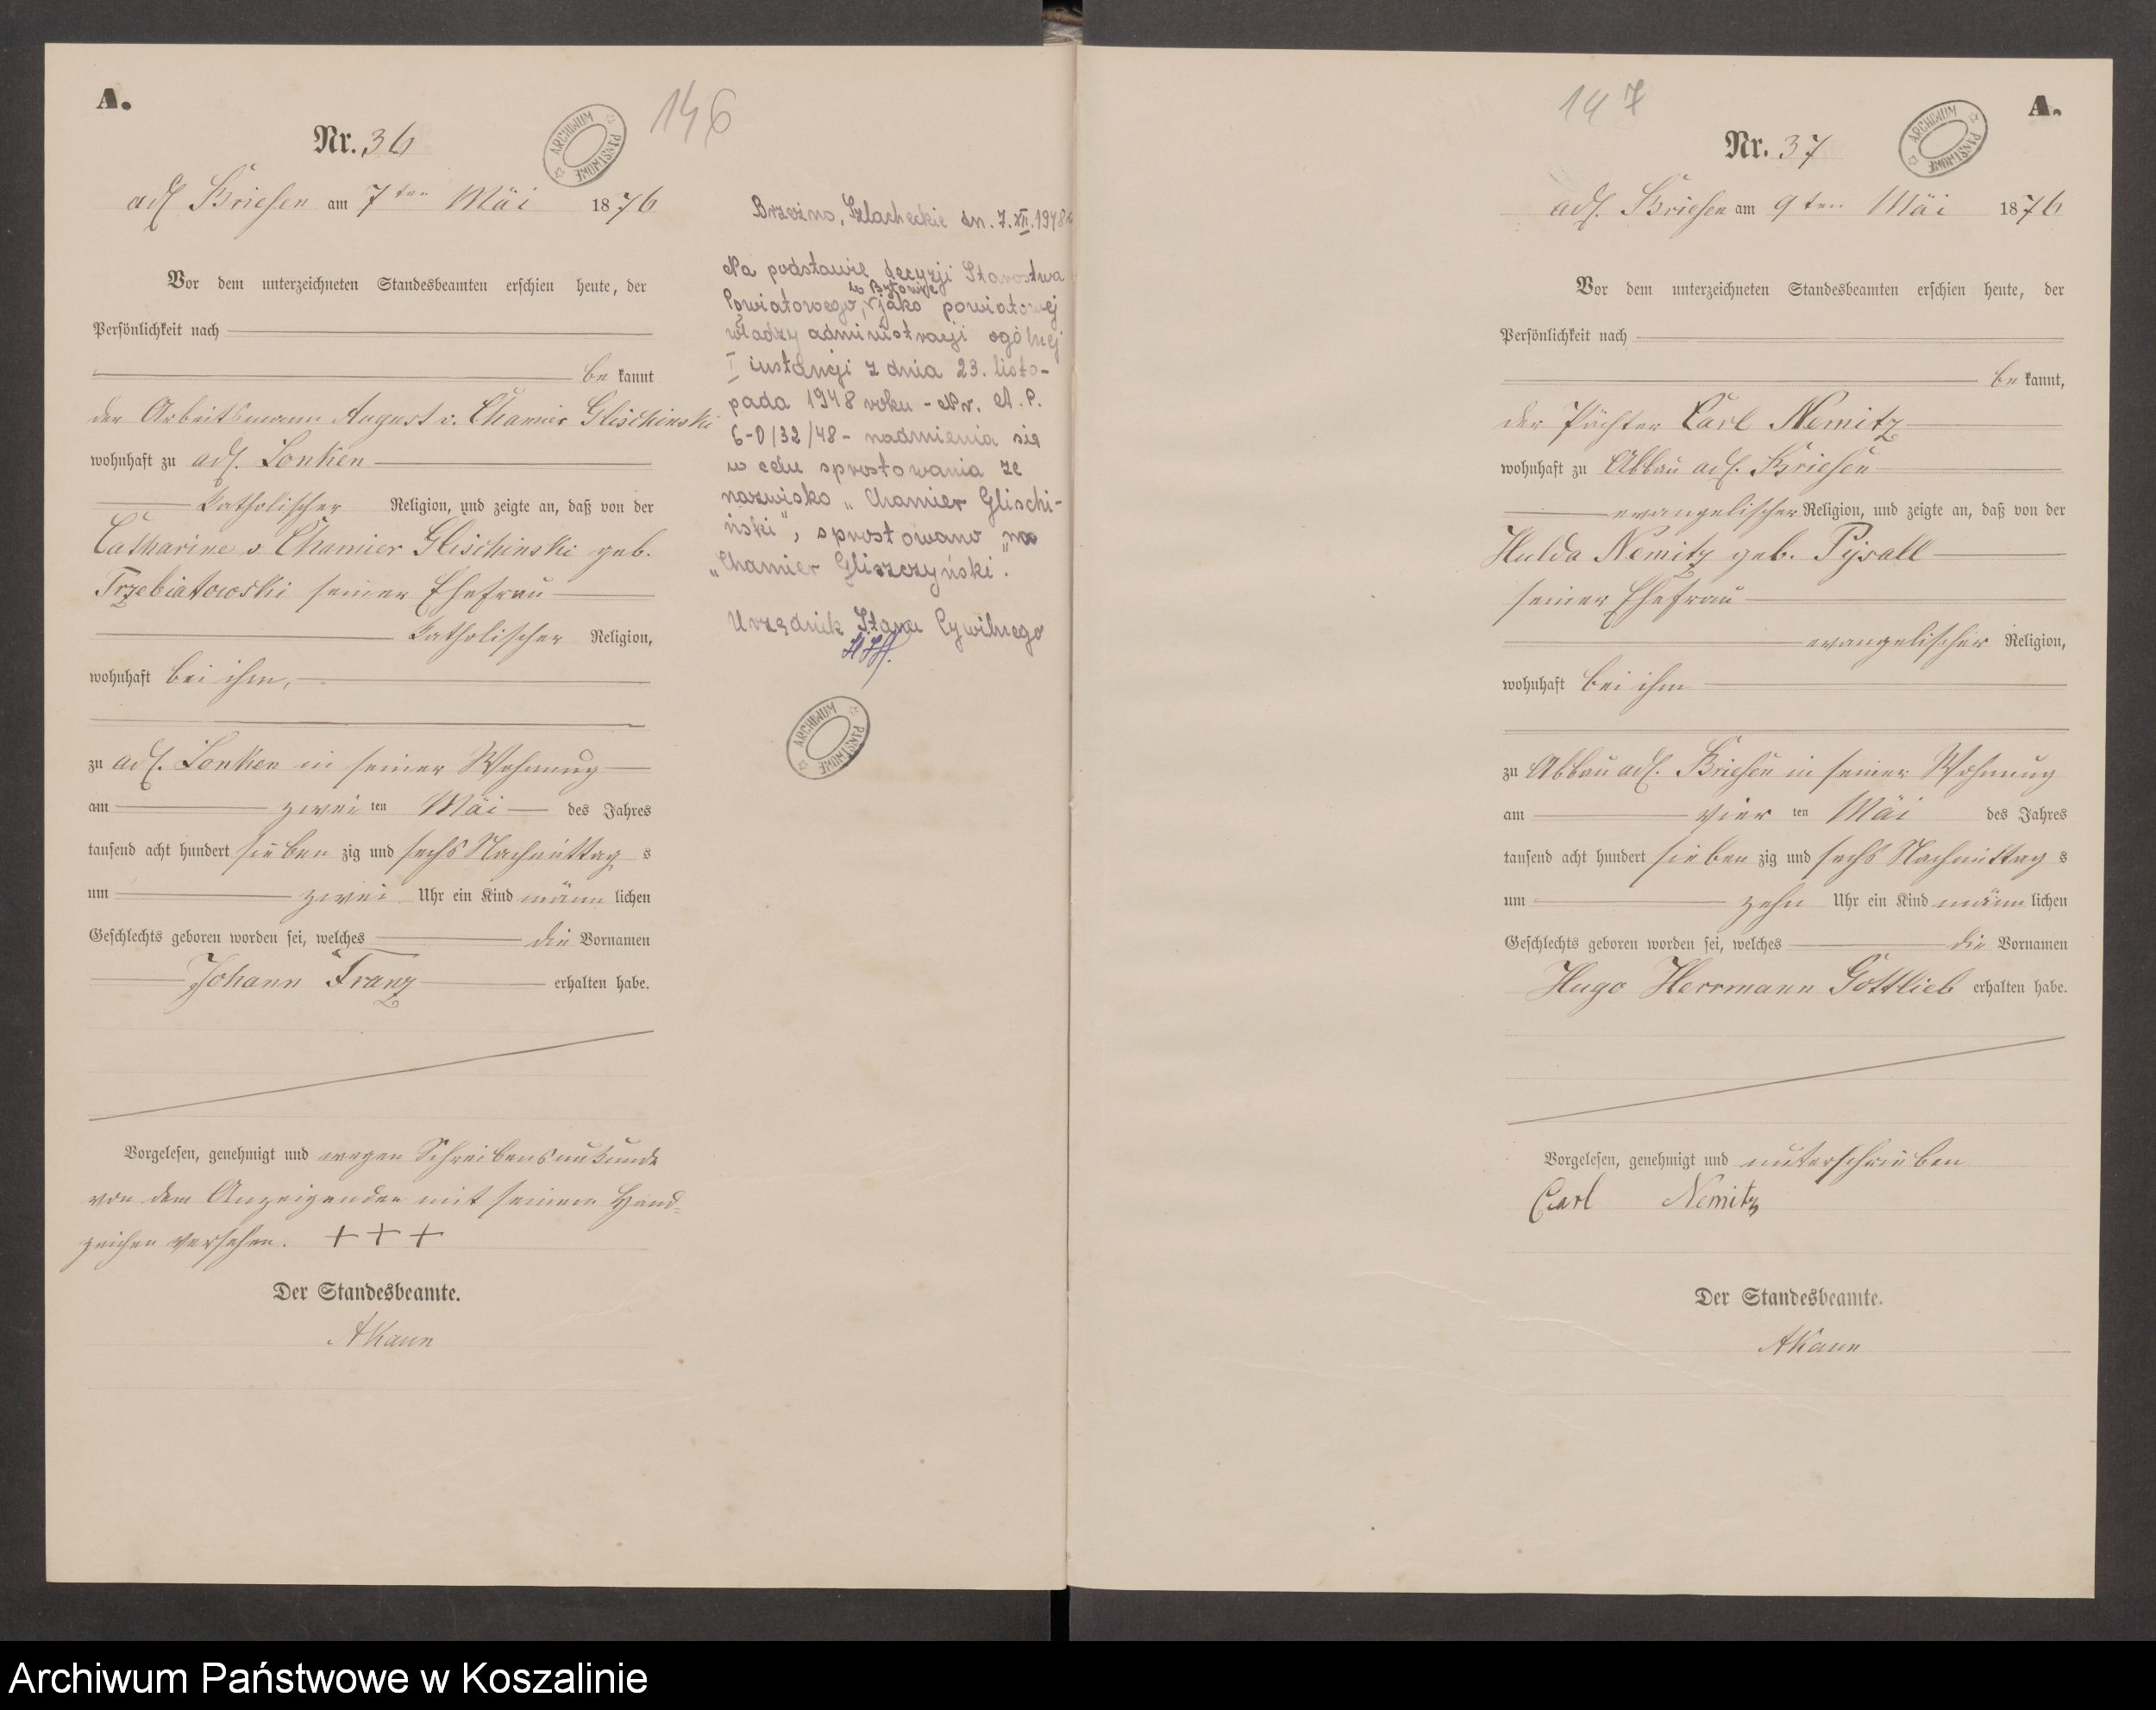 A.
146
Nr. 36
ARCHIWUM PAŃSTWOWE
adl Briesen am 7ten Mai 1876
Vor dem unterzeichneten Standesbeamten erschien heute, der
Persönlichkeit nach
be kannt
der Arbeitsmann August v. Chamier Glischinski
wohnhaft zu adl. Lonken
katholischer Religion, und zeigte an, daß von der
Catharine v Chamier Glischinski geb.
Trzebiatowski seiner Ehefrau
katholischer Religion,
wohnhaft bei ihm,
zu adl. Lonken in seiner Wohnung
am zwei ten Mai des Jahres
tausend acht hundert sieben zig und sechs Nachmittag s
um zwei Uhr ein Kind männ lichen
Geschlechts geboren worden sei, welches die Vornamen
Johann Franz erhalten habe.
Vorgelesen, genehmigt und wegen Schreibensunkunde
von dem Anzeigenden mit seinem Hand-
zeichen versehen. + + +
Der Standesbeamte.
AKaun
Brzeźno, Szlacheckie dn. 7.XII.1948 r
Na podstawie decyzji Starostwa
Powiatowego, w Bytowie jako powiatowej
władzy administracji ogólnej
I instancji z dnia 23. listo-
pada 1948 roku - Nr. A.P.
6-0/32/48 - nadmienia się
w celu sprostowania że
nazwisko „Chamier Glischi-
ński", sprostowano na
„Chamier Gliszczyński".
Urzędnik Stanu Cywilnego
ARCHIWUM PAŃSTWOWE
147
A.
Nr. 37
ARCHIWUM PAŃSTWOWE
adl. Briesen am 9ten Mai 1876
Vor dem unterzeichneten Standesbeamten erschien heute, der
Persönlichkeit nach
be kannt,
der Pächter Carl Nemitz
wohnhaft zu Abbau adl. Briesen
evangelischer Religion, und zeigte an, daß von der
Hulda Nemitz geb. Pysall
seiner Ehefrau
evangelischer Religion,
wohnhaft bei ihm
zu Abbau adl. Briesen in seiner Wohnung
am vier ten Mai des Jahres
tausend acht hundert sieben zig und sechs Nachmittag s
um zehn Uhr ein Kind männ lichen
Geschlechts geboren worden sei, welches die Vornamen
Hugo Herrmann Gottlieb erhalten habe.
Vorgelesen, genehmigt und unterschrieben
Carl Nemitz
Der Standesbeamte.
AKaun
Archiwum Państwowe w Koszalinie